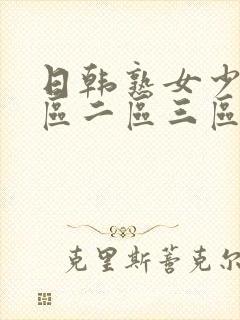 日韩熟女少
區二區三區
克里斯蒂克尔